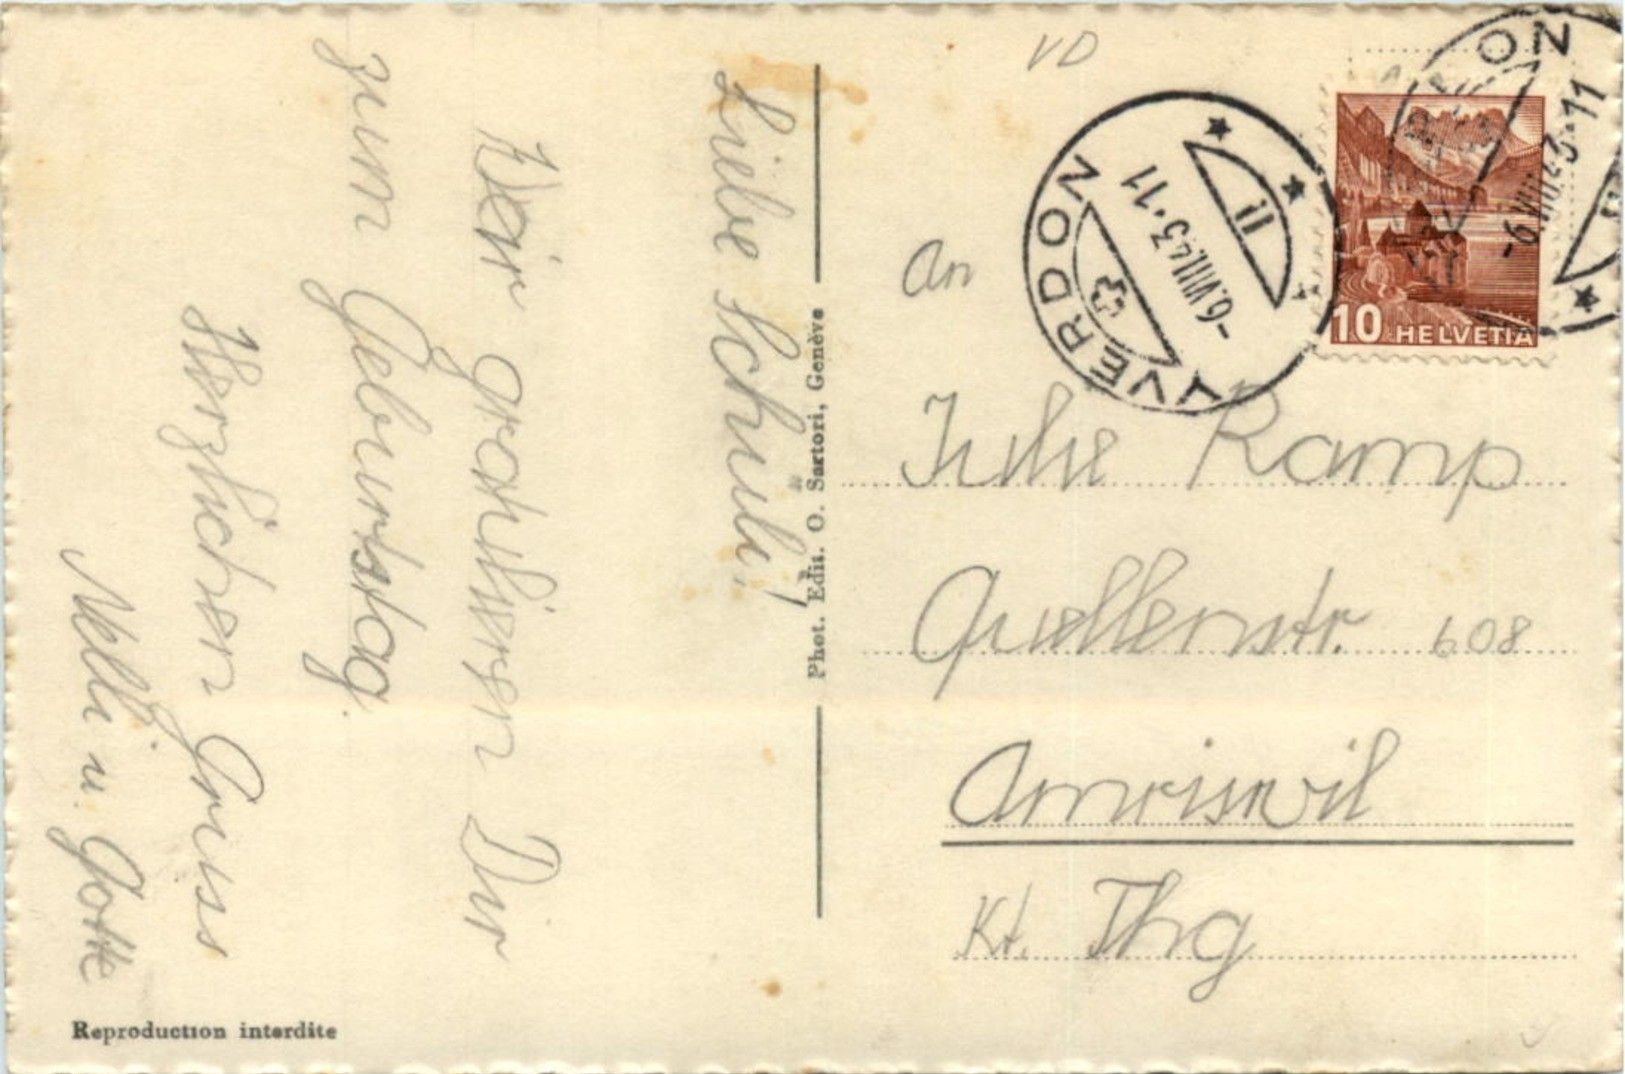 Liebe Schuli,
Wir gratulieren Dir
zum Geburtstag.
Herzlichen Gruss
Nelli u. Gotte
Phot. Edit. O. Sartori, Genève
Reproduction interdite
VD
YVERDON
-6.VIII.43·11
YVERDON
-6.VIII.43·11
10 HELVETIA
An
Julie Ramp
Quellenstr. 608
Amriswil
Kt. Thg